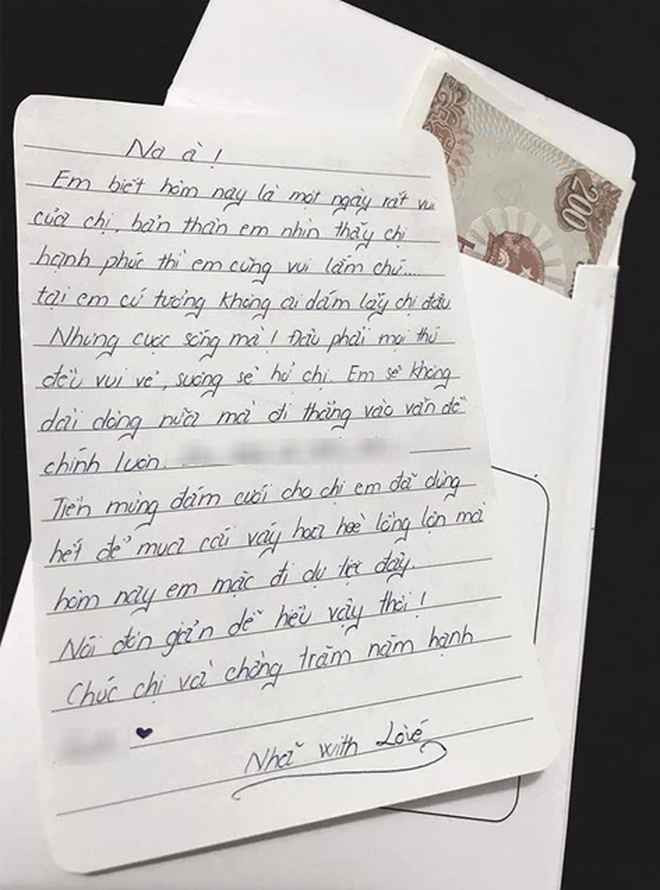 Na à!
Em biết hôm nay là một ngày rất vui
của chị, bản thân em nhìn thấy chị
hạnh phúc thì em cũng vui lắm chứ....
tại em cứ tưởng không ai dám lấy chị đâu
Nhưng cuộc sống mà! Đâu phải mọi thứ
đều vui vẻ, sướng sẽ hở chị. Em sẽ không
dài dòng nữa mà đi thẳng vào vấn đề
chính luôn.
Tiền mừng đám cưới cho chị em đã dùng
hết để mua cái váy hoa hoè lồng lộn mà
hôm nay em mặc đi dự tiệc đây.
Nói đơn giản dễ hiểu vậy thôi!
Chúc chị và chồng trăm năm hạnh
Nhã with Love
200